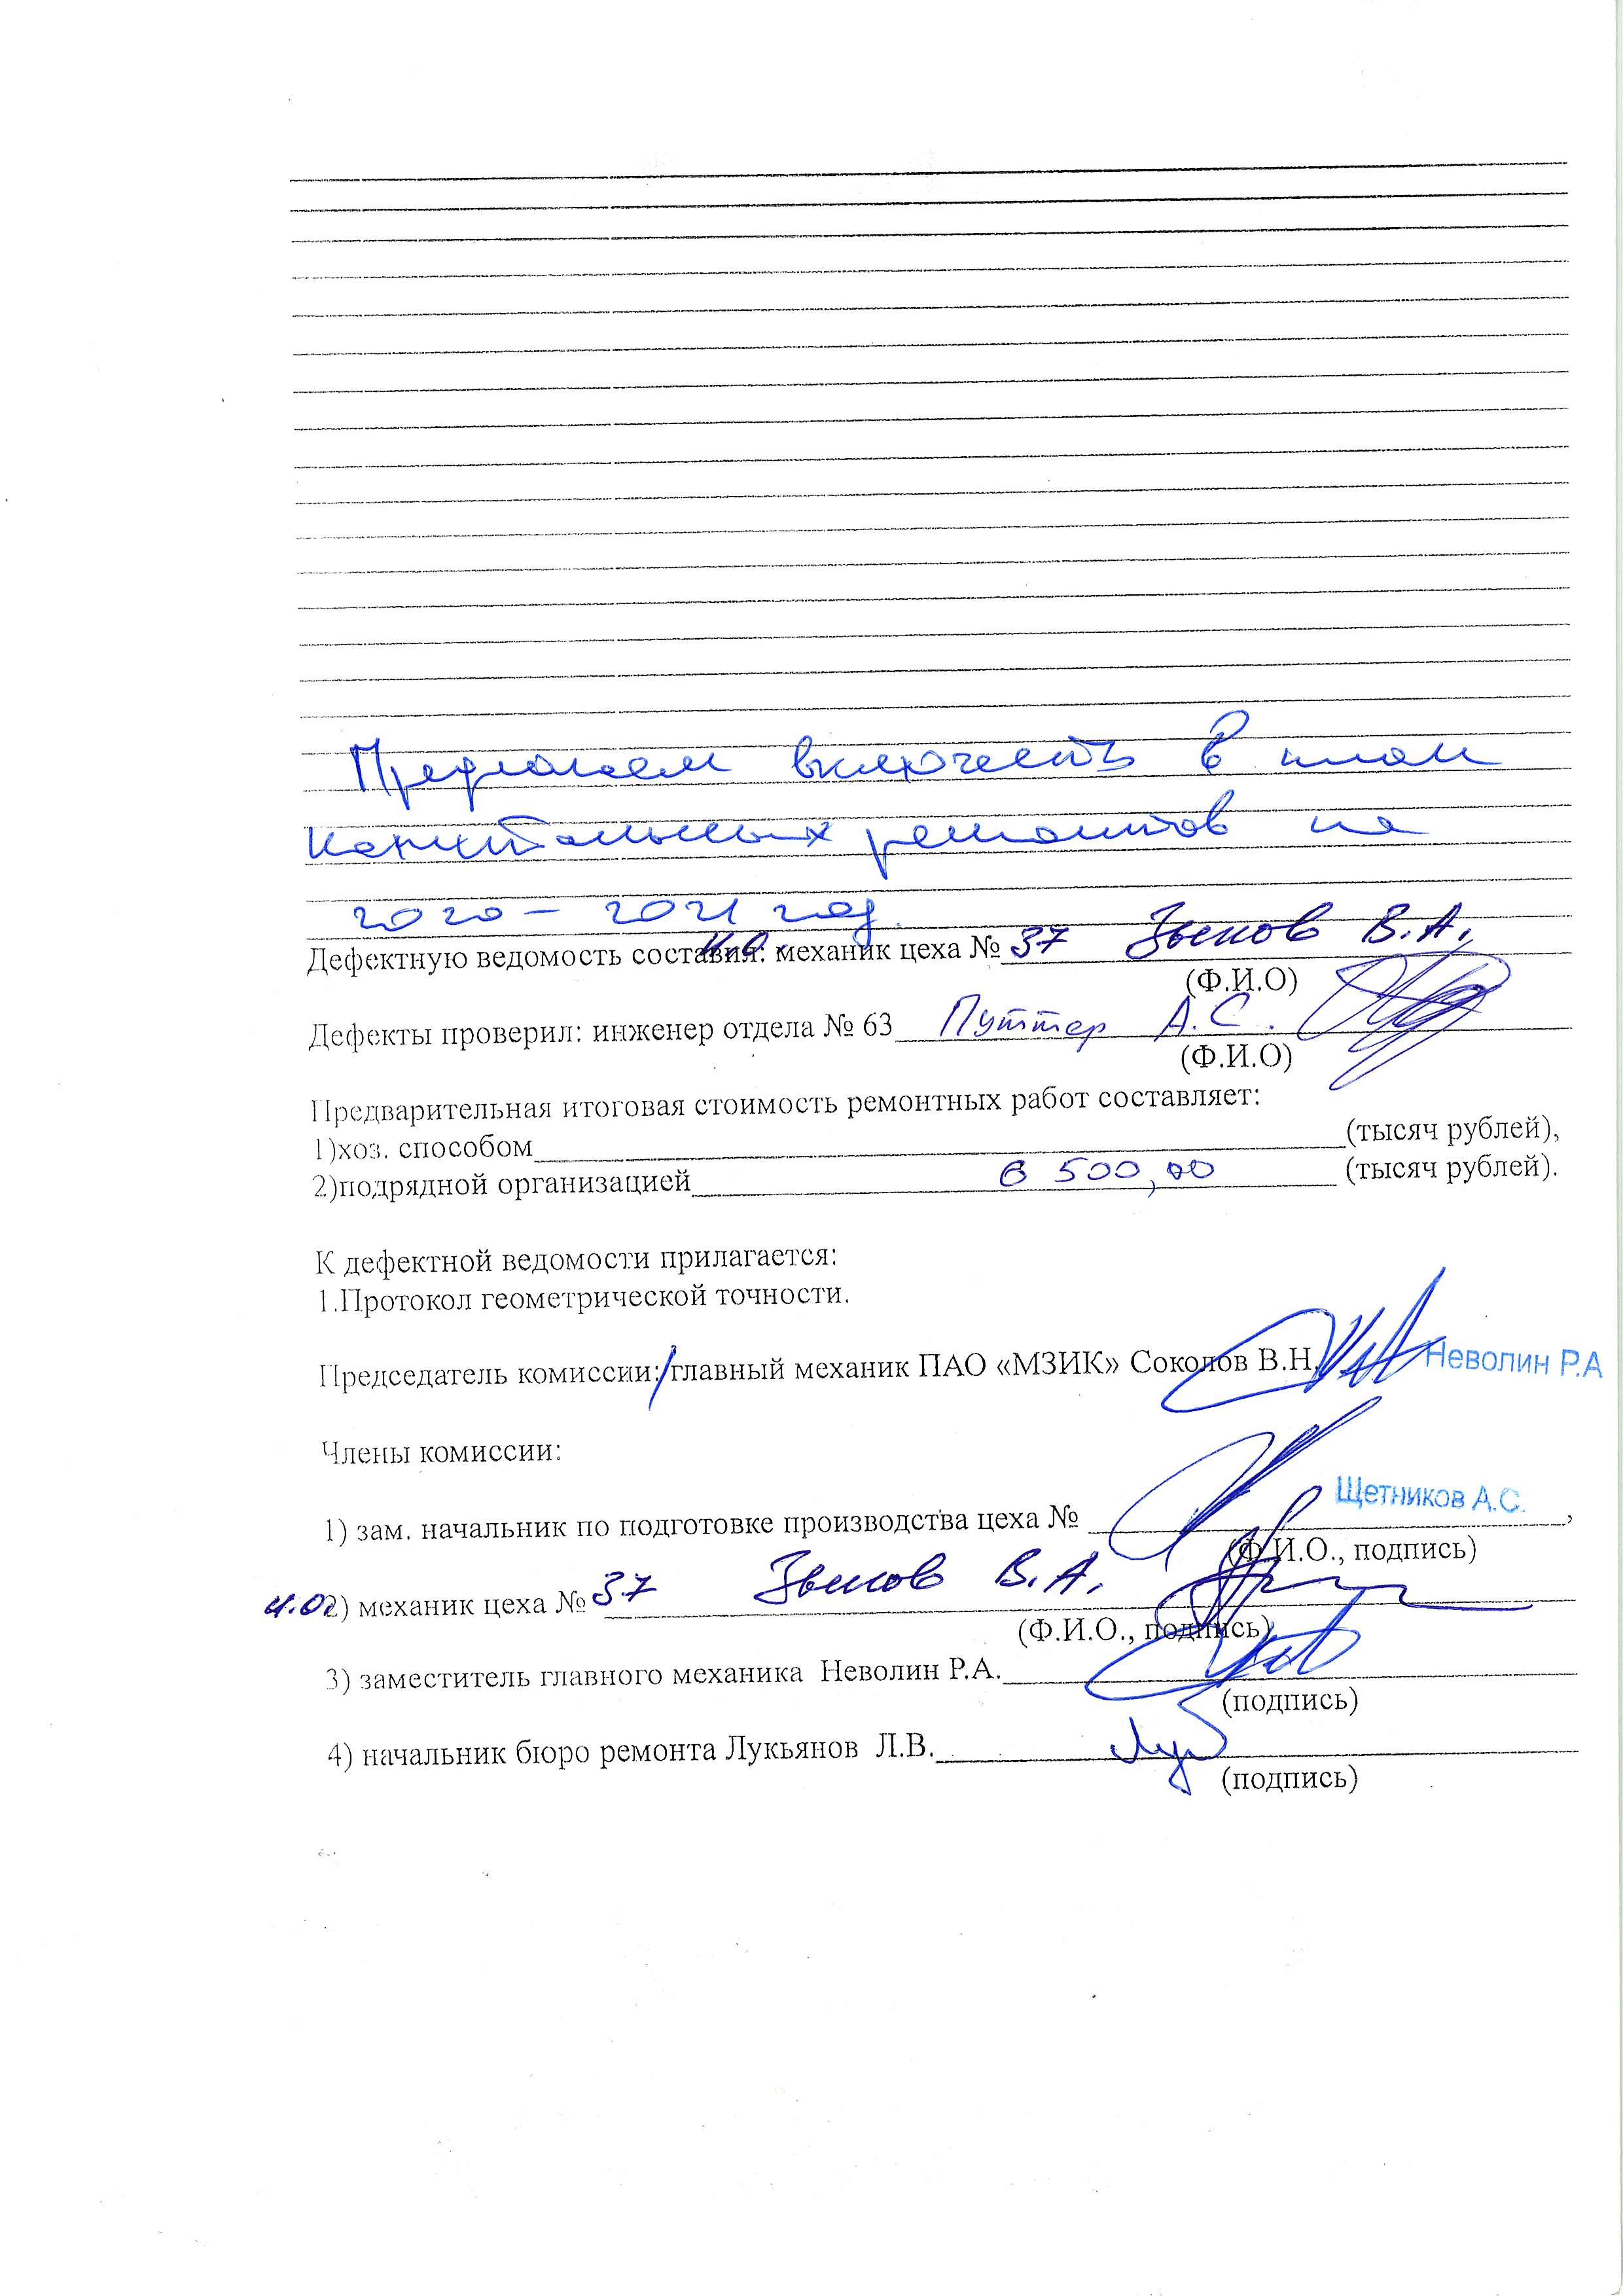 Предлагаем включить в план
капитальных ремонтов на
2020 – 2021 год.
Дефектную ведомость составил: и.о. механик цеха № 37 Зыков В.А.
(Ф.И.О)
Дефекты проверил: инженер отдела № 63 Путтер А.С.
(Ф.И.О)
Предварительная итоговая стоимость ремонтных работ составляет:
1)хоз. способом (тысяч рублей),
2)подрядной организацией 6 500,00 (тысяч рублей).
К дефектной ведомости прилагается:
1.Протокол геометрической точности.
Председатель комиссии:/главный механик ПАО «МЗИК» Соколов В.Н. Неволин Р.А
Члены комиссии:
1) зам. начальник по подготовке производства цеха № Щетников А.С. ,
(Ф.И.О., подпись)
и.о. 2) механик цеха № 37 Зыков В.А.
(Ф.И.О., подпись)
3) заместитель главного механика Неволин Р.А.
(подпись)
4) начальник бюро ремонта Лукьянов Л.В.
(подпись)